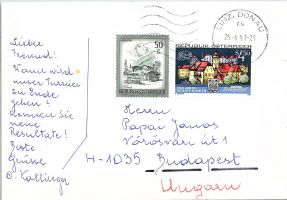 Lieber
Freund!
Wann wird
unser Turnier
zu Ende
gehen?
Können Sie
neue
Resultate!
Beste
Grüsse
O. Kallinger
50
REPUBLIK ÖSTERREICH
REPUBLIK ÖSTERREICH
LINZ, DONAU
25.-6.91-21
Herrn
Papai Janos
Vörösvari út 1
H-1035 Budapest
Ungarn